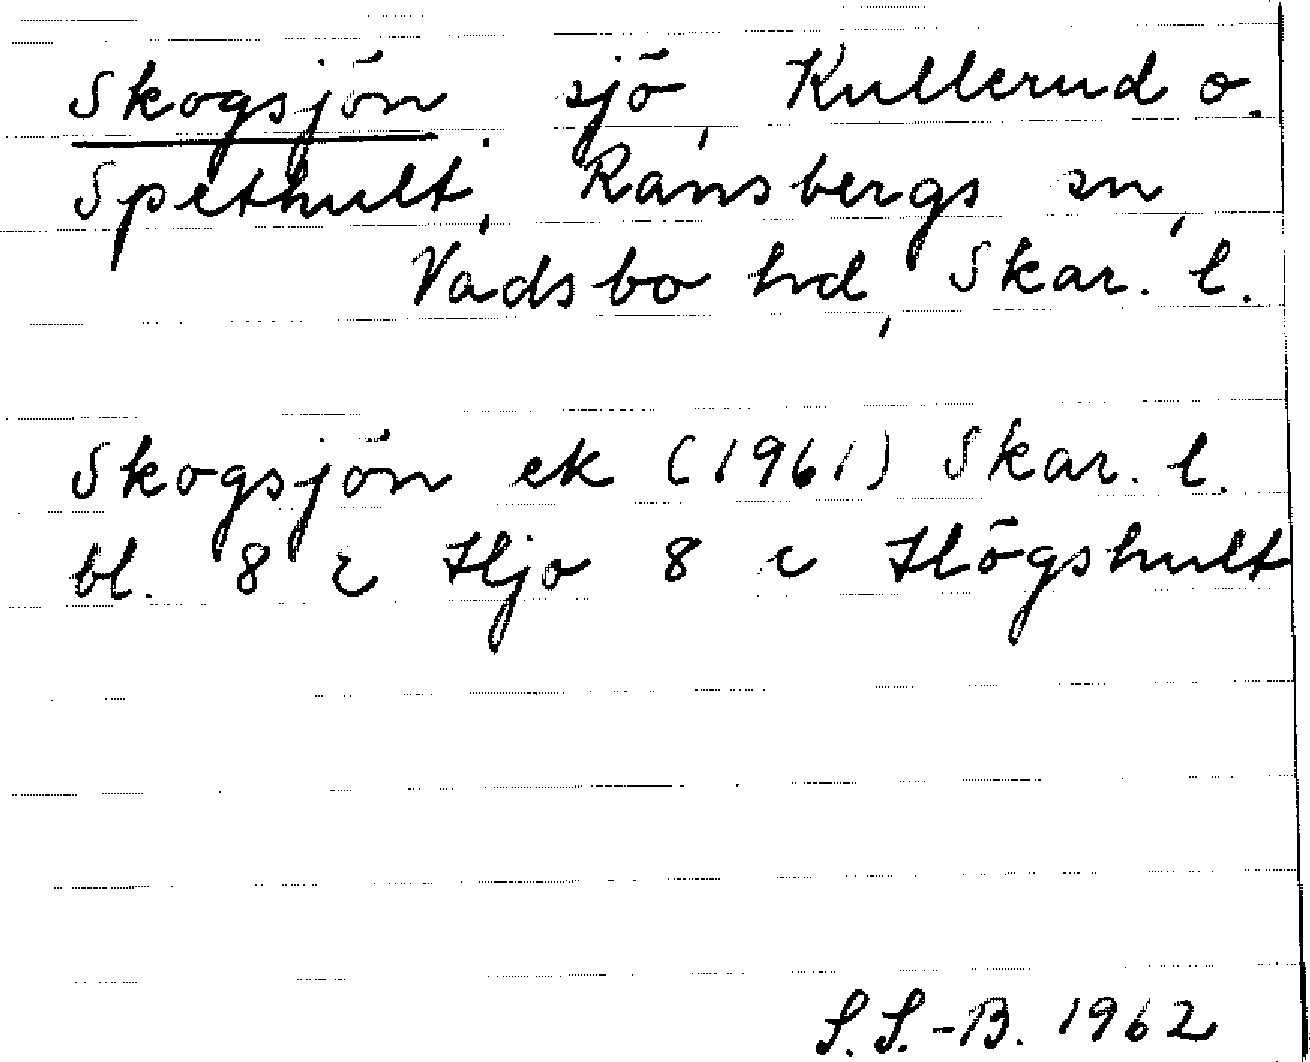 Skogsjön, sjö, Kullerud o.
Spethult, Ransbergs sn,
Vadsbo hd, Skar. l.
Skogsjön ek (1961) Skar. l.
bl. 8 Hjo 8 c Högshult
S. S.-B. 1962